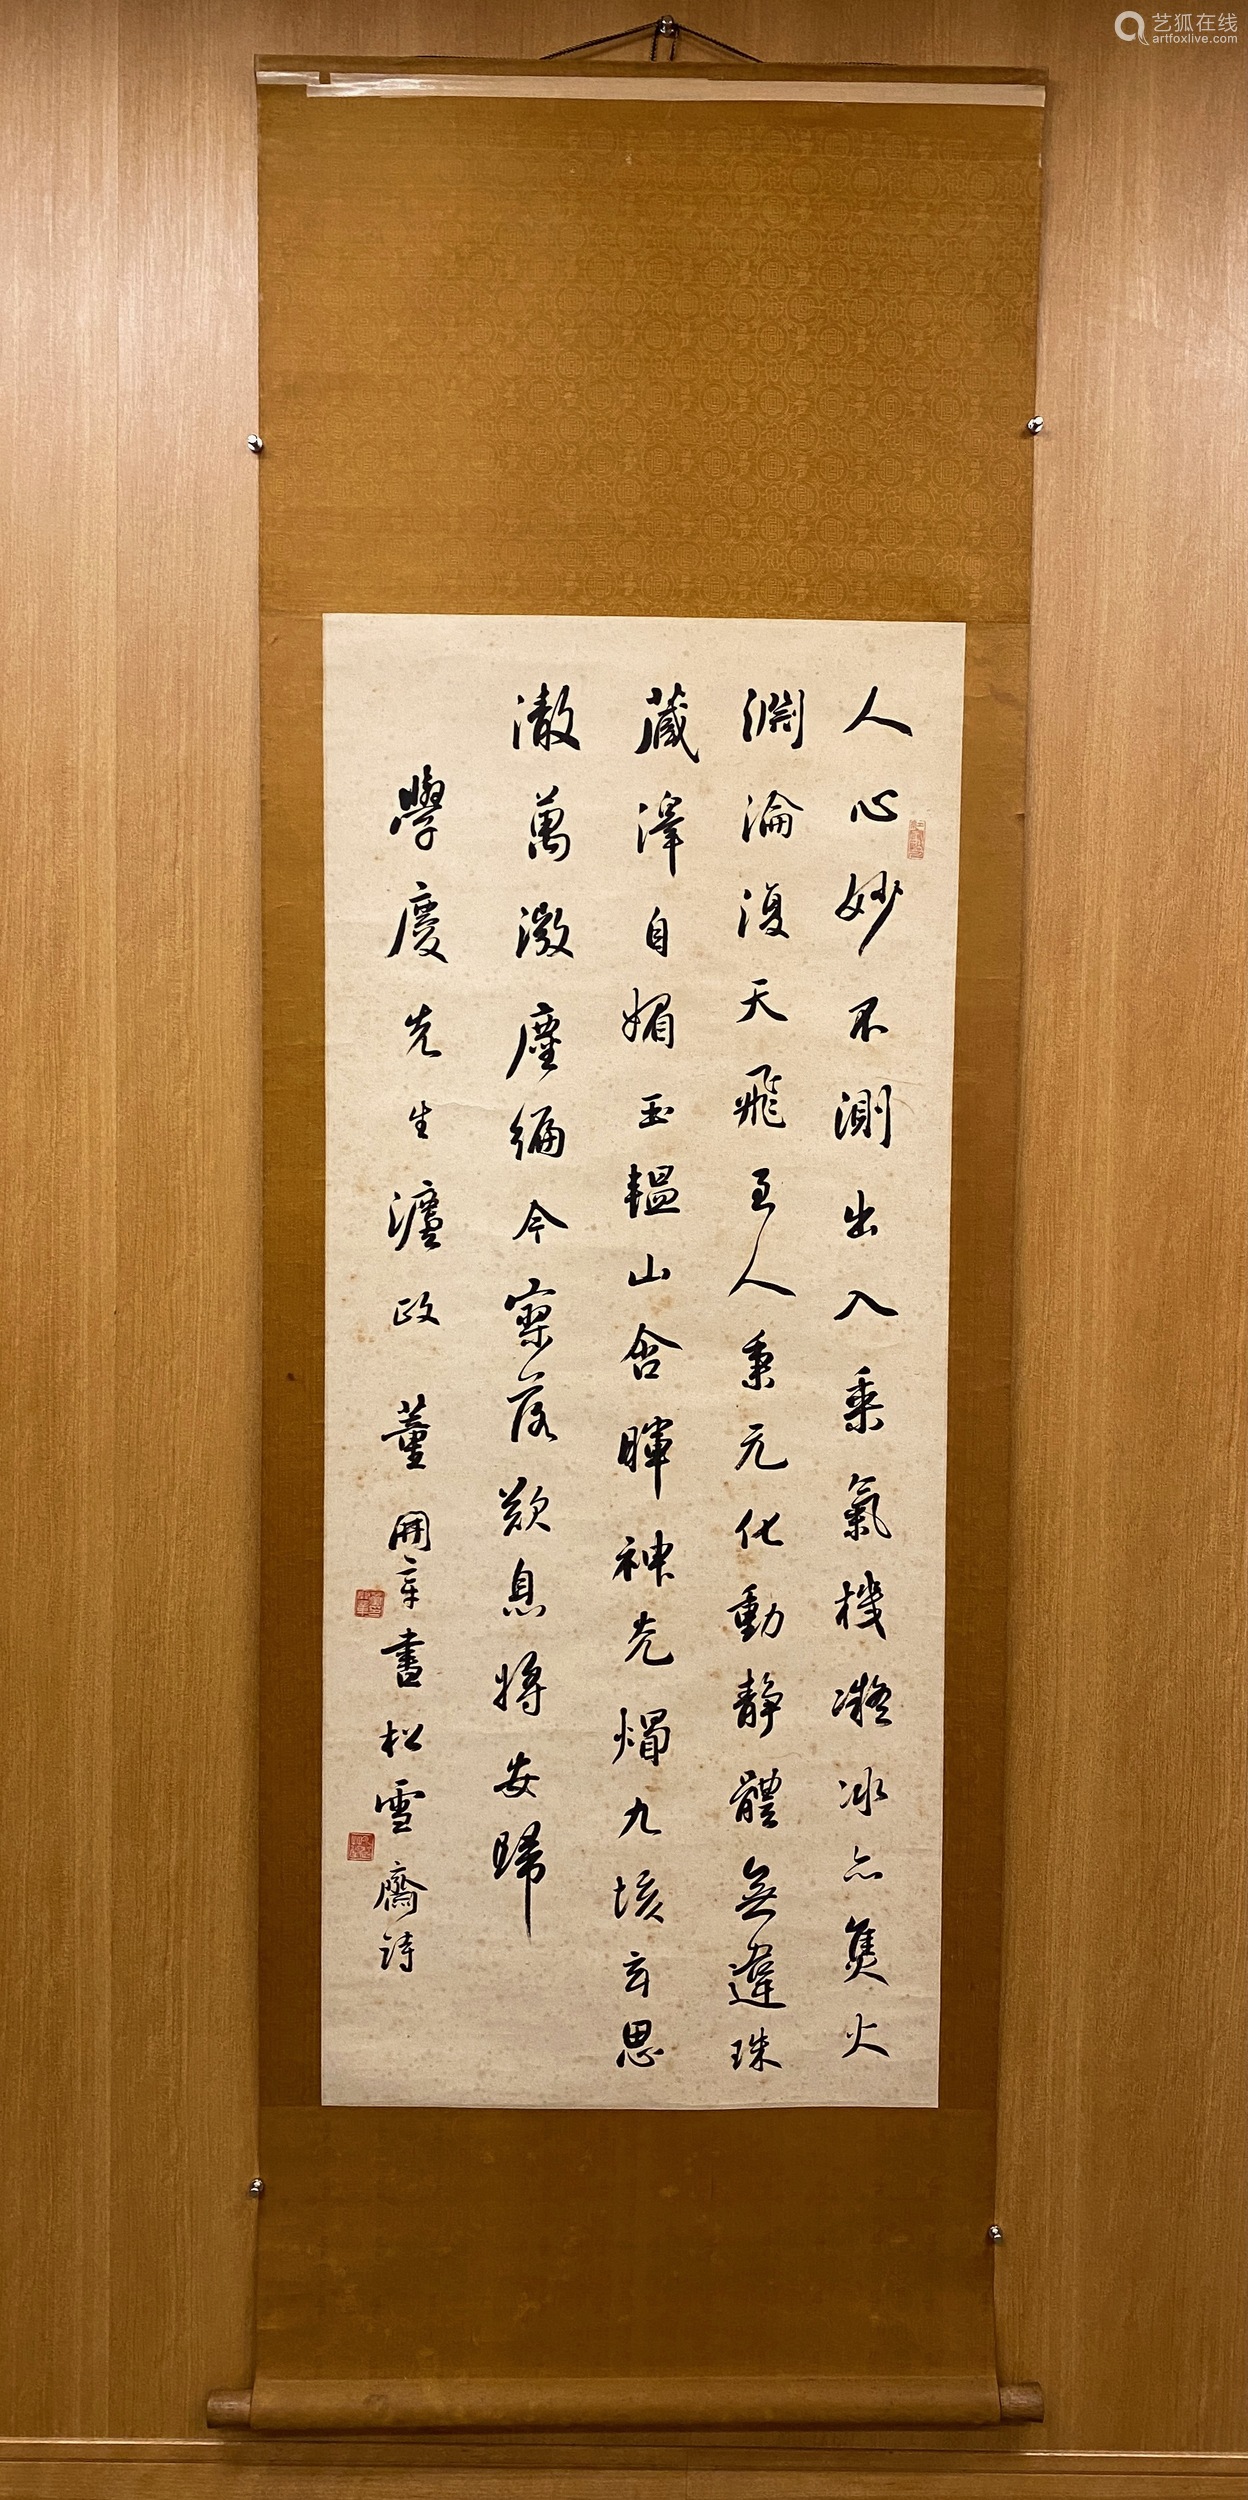 艺狐在线
artfoxlive.com
人心妙不測出入乘氣機凝冰亦焦火
淵淪復天飛至人秉元化動靜體無違珠
藏澤自媚玉韞山含暉神光燭九垓玄思
澈萬微塵編今寥落歎息將安歸
學慶先生灋政 董開章書松雪齋詩